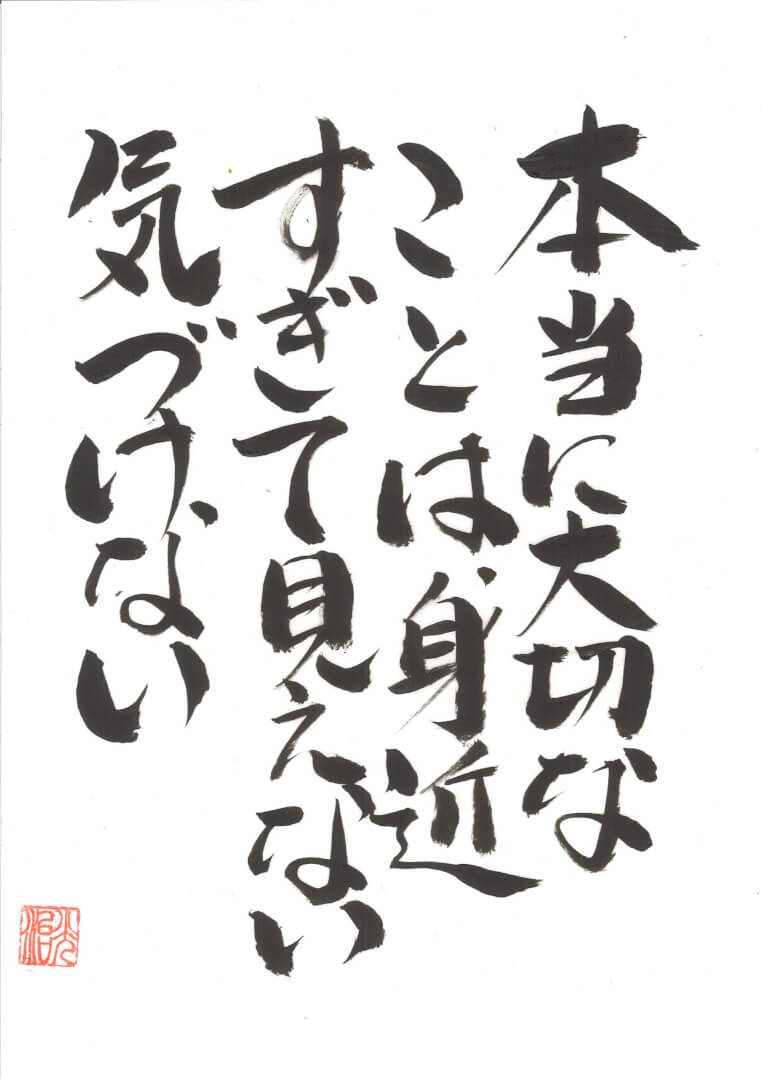 本当に大切な
ことは身近
すぎて見えない
気づけない